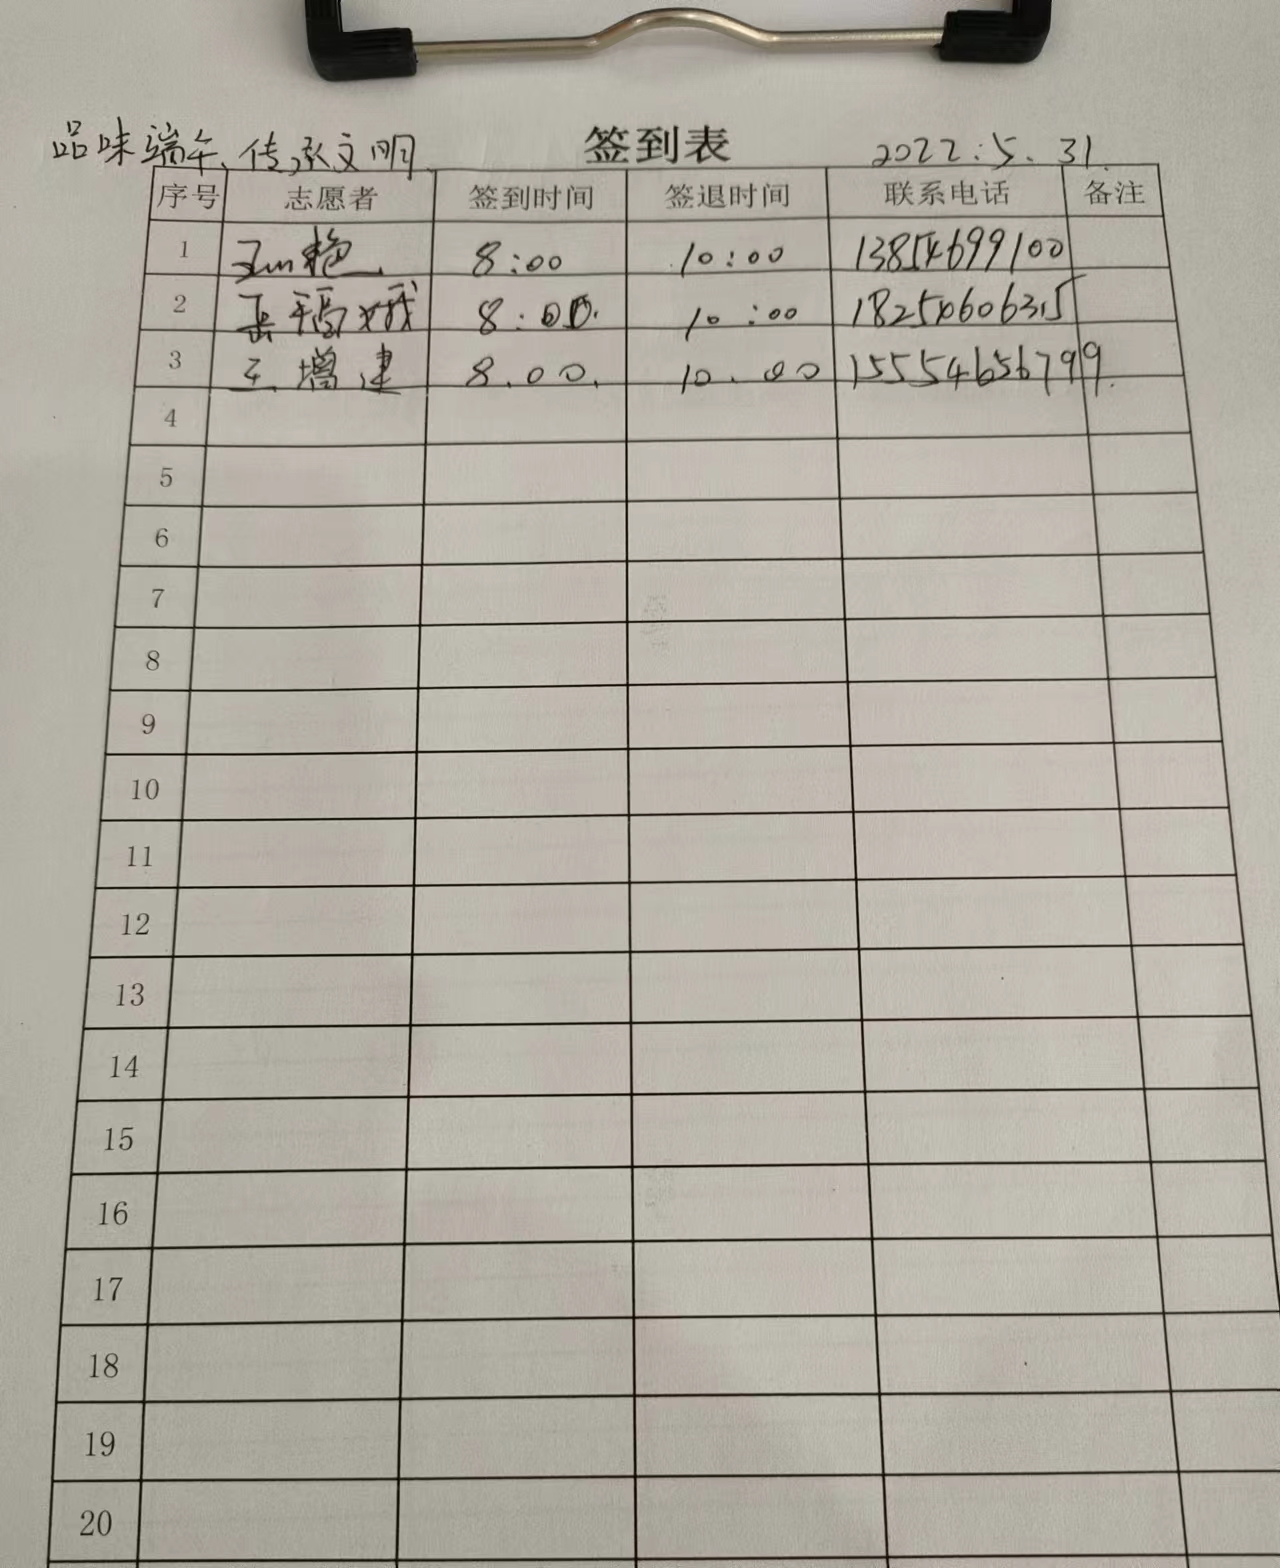 签到表
品味端午、传承文明 2022.5.31.
序号 志愿者 签到时间 签退时间 联系电话 备注
1 艳 8:00 10:00 13854699100
2 8:00. 10:00 18254606315
3 王增建 8.00. 10.00 15554656799.
4
5
6
7
8
9
10
11
12
13
14
15
16
17
18
19
20